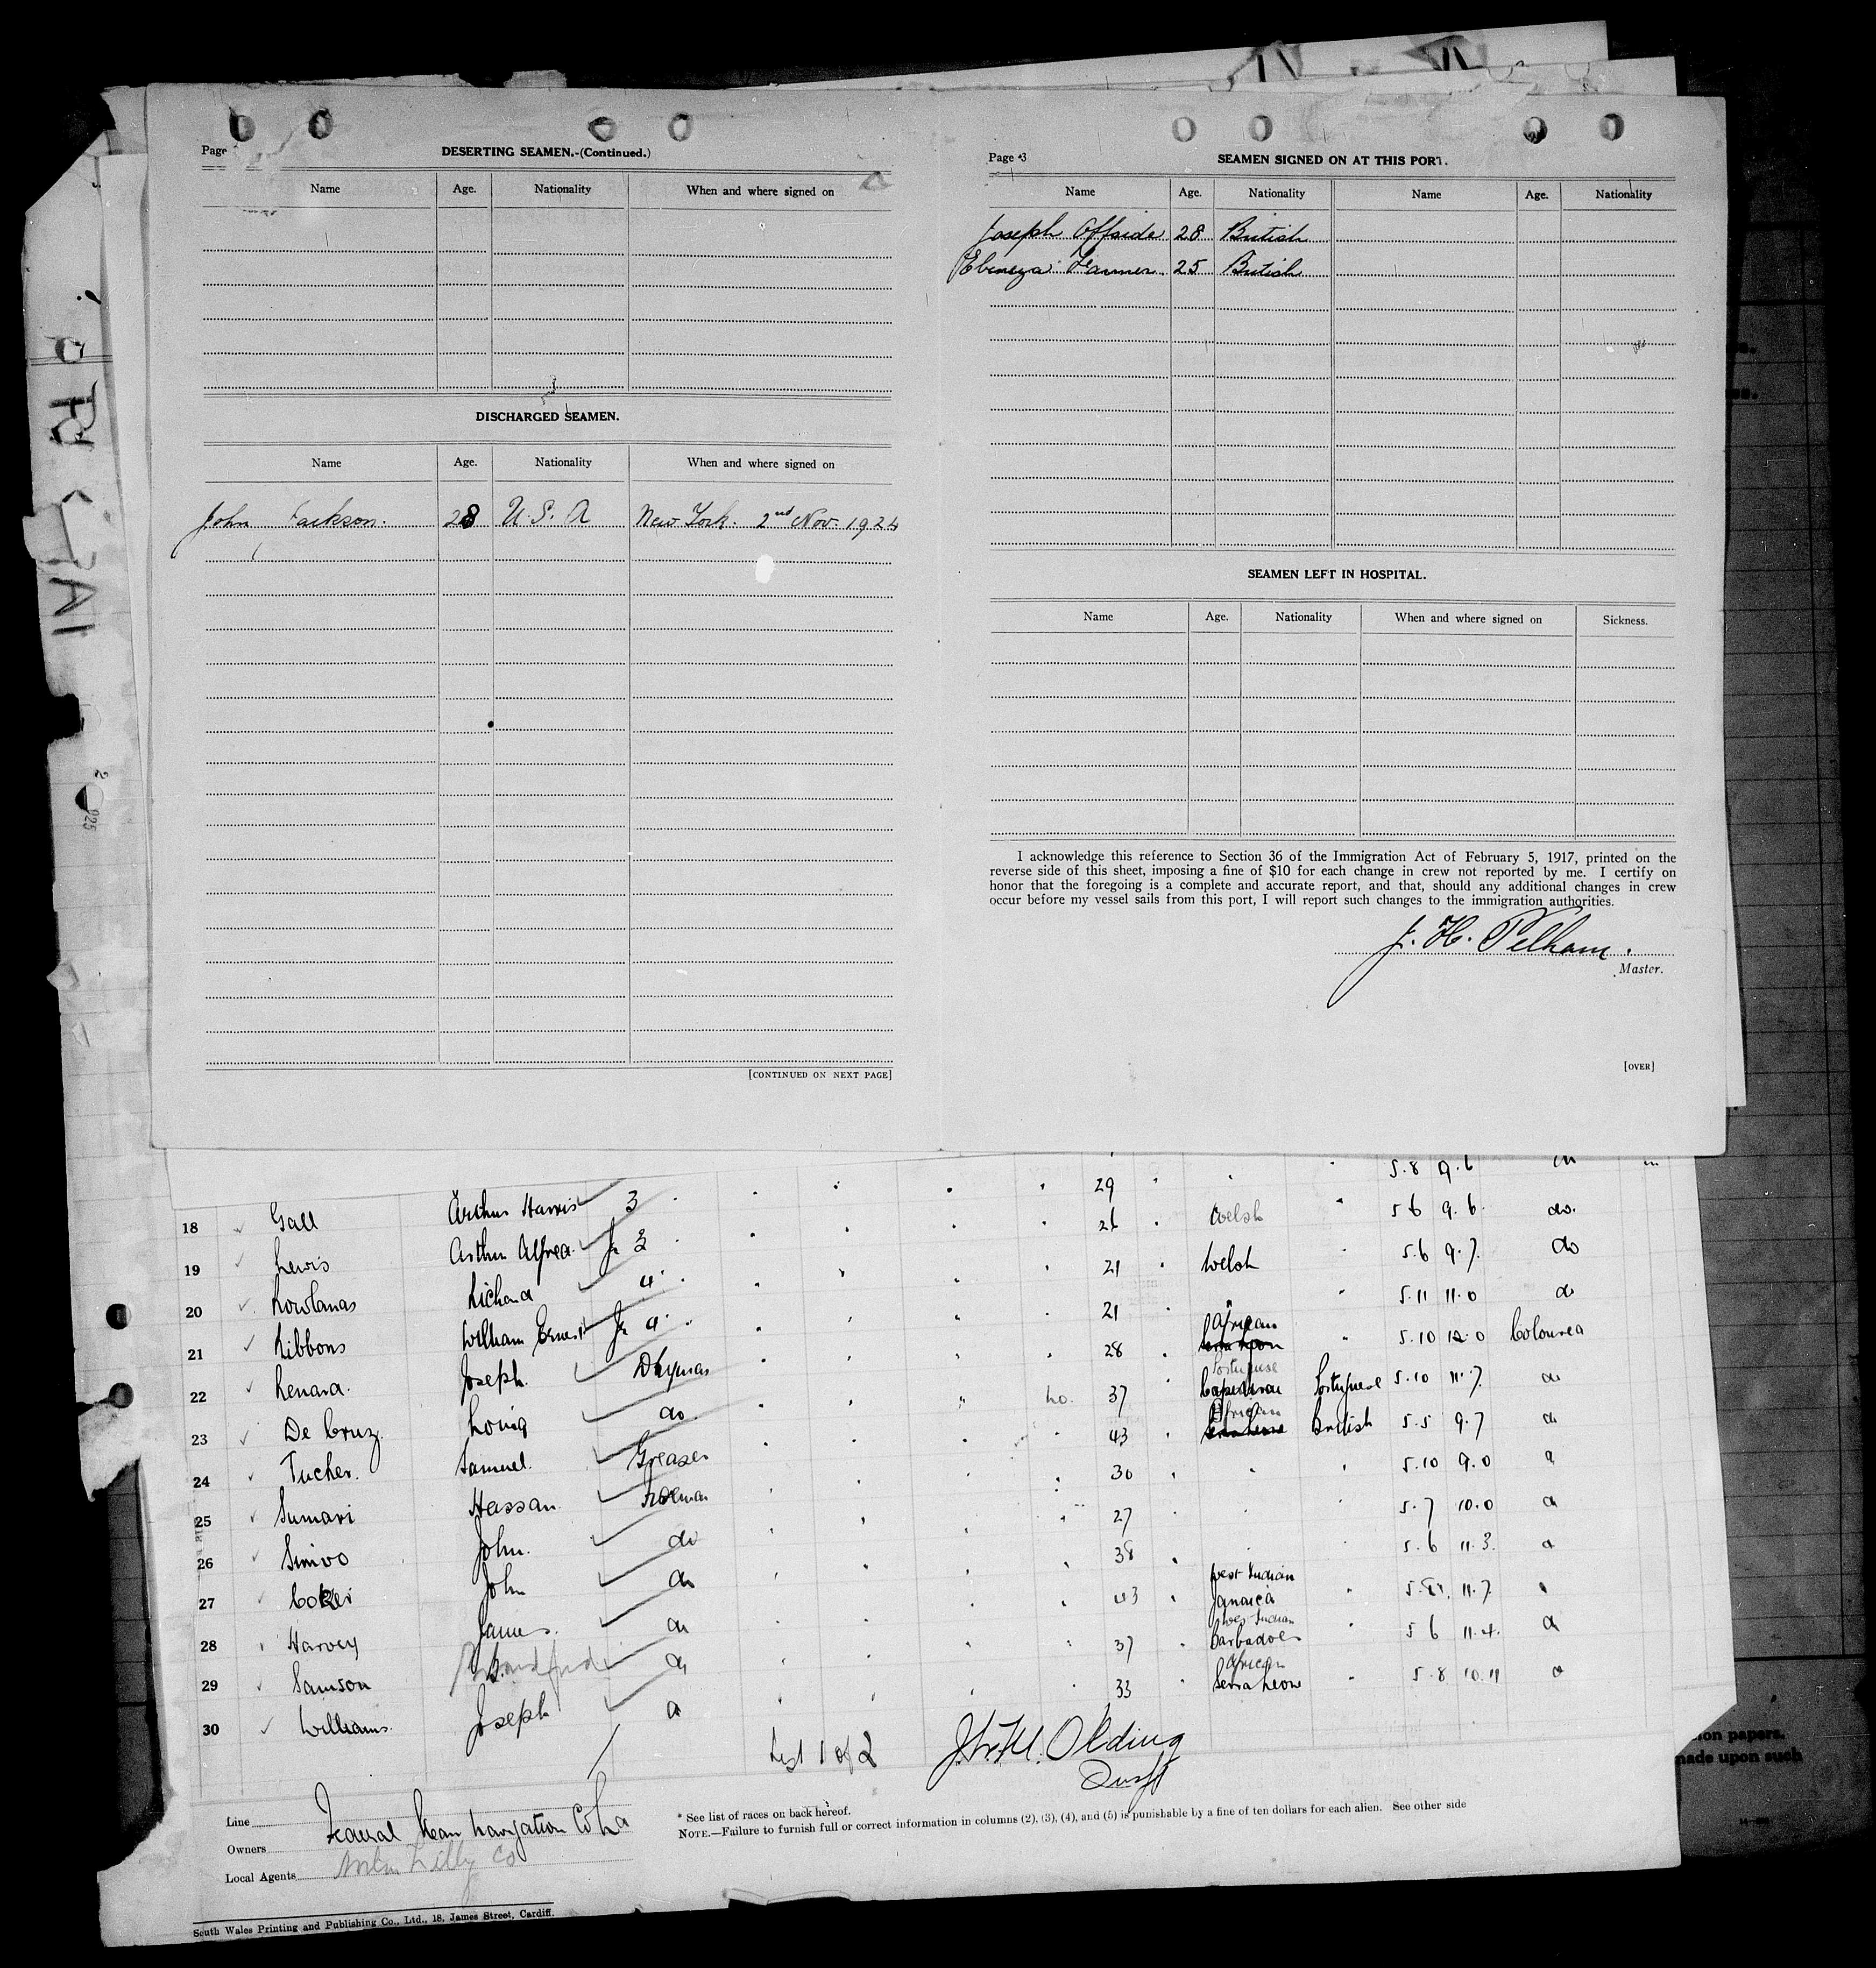 Page
DESERTING SEAMEN.-(Continued.)
Name Age. Nationality When and where signed on
DISCHARGED SEAMEN.
Name Age. Nationality When and where signed on
John Jackson. 28 U.S.A New York. 2nd Nov. 1924
[CONTINUED ON NEXT PAGE]
Page 3
SEAMEN SIGNED ON AT THIS PORT.
Name Age. Nationality Name Age. Nationality
Joseph Offside 28 British
Ebeneza 25 British
SEAMEN LEFT IN HOSPITAL.
Name Age. Nationality When and where signed on Sickness.
I acknowledge this reference to Section 36 of the Immigration Act of February 5, 1917, printed on the
reverse side of this sheet, imposing a fine of $10 for each change in crew not reported by me. I certify on
honor that the foregoing is a complete and accurate report, and that, should any additional changes in crew
occur before my vessel sails from this port, I will report such changes to the immigration authorities.
J. H. Pelham.
Master.
[OVER]
5.8 9.6
18 Gall Arthur Harris 3 29 5 6 9.6 do.
19 Lewis Arthur Alfred Jr 3 26 Welsh 5.6 9.7 do
20 Rowlands Richard 4 21 Welsh 5.11 11.0 do
21 Ribbons William Ernest Jr 4 21 African 5.10 12.0 Coloured
22 Renard. Joseph. Dkyman 28 Portuguese
23 De Cruz. Louis do. 37 Portuguese 5.10 11.7 do
24 Tucker. Samuel. Greaser 43 African British 5.5 9.7 do
25 Sumari Hassan. Fireman 30 5.10 9.0
26 Simvo John. do 27 5.7 10.0
27 Coker John do 38 5.6 11.3.
28 Harvey James. do 43 West Indian Jamaica 11.7
29 Samson do 37 West Indian Barbadoes 5 6 11.4.
30 Williams. Joseph do 33 African Sierra Leone 5.8 10.11
List 1 of 2
Olding
Line
Owners Federal Steam Navigation Co Ld
Local Agents Norton Lilly Co
* See list of races on back hereof.
NOTE.—Failure to furnish full or correct information in columns (2), (3), (4), and (5) is punishable by a fine of ten dollars for each alien. See other side
South Wales Printing and Publishing Co., Ltd., 18, James Street, Cardiff.
ion papers.
nade upon such